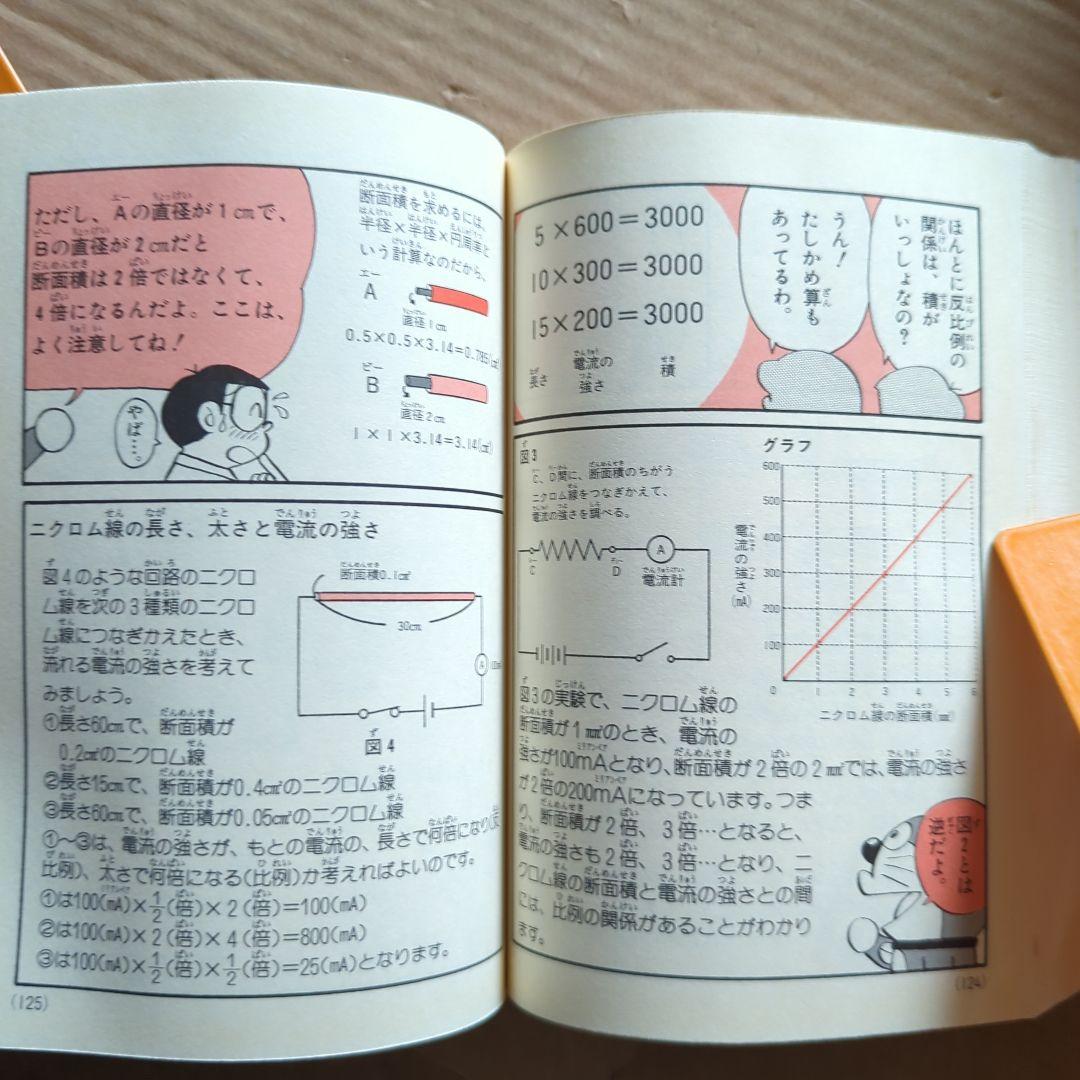 ほんとに反比例の
関係は、積が
いっしょなの？
うん！
たしかめ算も
あってるわ。
5×600＝3000
10×300＝3000
15×200＝3000
長さ
電流の
強さ
積
図3
C、D間に、断面積のちがう
ニクロム線をつなぎかえて、
電流の強さを調べる。
C
D
A
電流計
グラフ
600
500
400
300
200
100
0
1
2
3
4
5
6
電流の強さ(mA)
ニクロム線の断面積(㎟)
図3の実験で、ニクロム線の
断面積が1㎟のとき、電流の
強さが100mAとなり、断面積が2倍の2㎟では、電流の強さ
が2倍の200mAになっています。つま
り、断面積が2倍、3倍…となると、
電流の強さも2倍、3倍…となり、ニ
クロム線の断面積と電流の強さとの間
には、比例の関係があることがわかり
ます。
図2とは
逆だよ。
(124)
断面積を求めるには、
半径×半径×円周率と
いう計算なのだから、
A
直径1cm
0.5×0.5×3.14＝0.785(㎠)
B
直径2cm
1×1×3.14＝3.14(㎠)
ただし、Aの直径が1cmで、
Bの直径が2cmだと
断面積は2倍ではなくて、
4倍になるんだよ。ここは、
よく注意してね！
やば…。
ニクロム線の長さ、太さと電流の強さ
図4のような回路のニクロ
ム線を次の3種類のニクロ
ム線につなぎかえたとき、
流れる電流の強さを考えて
みましょう。
①長さ60cmで、断面積が
0.2㎠のニクロム線
②長さ15cmで、断面積が0.4㎠のニクロム線
③長さ60cmで、断面積が0.05㎠のニクロム線
断面積0.1㎠
30cm
A
図4
①〜③は、電流の強さが、もとの電流の、長さで何倍になり(反
比例)、太さで何倍になる(比例)か考えればよいのです。
①は100(mA)×1/2(倍)×2(倍)＝100(mA)
②は100(mA)×2(倍)×4(倍)＝800(mA)
③は100(mA)×1/2(倍)×1/2(倍)＝25(mA)となります。
(125)